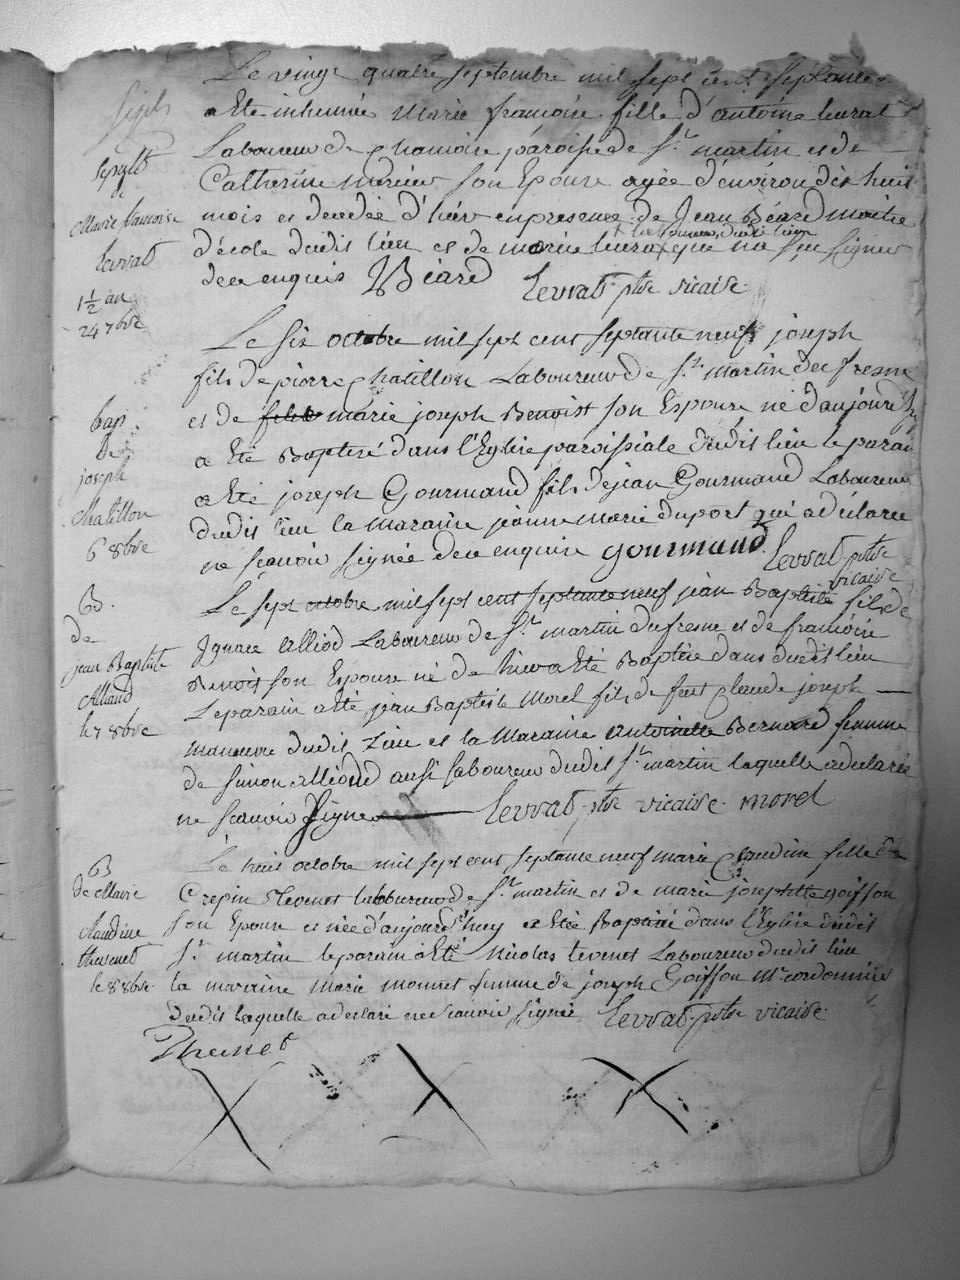 Le vingt quatre septembre mil sept cent septante
a Eté inhumée Marie francoise fille d'antoine leurat
Laboureur de Chamoise paroisse de St martin et de
Catherine mercier son Epouse agée d'environ dix huit
mois et decedée d'hier en presence de Jean Béard maitre
d'école dudit lieu et de marie leurat que na sçu signer
de ce enquis JBéard Levrat ptre vicaire
Sepult
de
Marie francoise
levrat
1 1/2 an
24 7bre
Le six octobre mil sept cent septante neuf joseph
fils de pierre Chatillon Laboureur de St martin du fresne
et de marie joseph Benoist son Epouse né d'aujourd'huy
a Eté Baptisé dans l'Eglise paroissiale dudit lieu le parain
a Eté joseph Gourmand fils de jean Gourmand Laboureur
dudit lieu la maraine jeanne marie duport qui a déclarée
ne scavoir signée de ce enquise gourmand Levrat ptre
vicaire
bap
de
joseph
Chatillon
6 8bre
Le sept octobre mil sept cent septante neuf jean Baptiste fils de
Ignace Alliod Laboureur de St martin du fresne et de francoise
Benoit son Epouse né de hier a Eté Baptisé dans dudit lieu
Le parain a Eté jean Baptiste Morel fils de feu Claude joseph
manœuvre dudit Lieu et la Maraine antoinette Bernard femme
de simon Alliod aussi laboureur dudit St martin laquelle a declarée
ne scavoir signer Levrat ptre vicaire morel
B.
de
jean Baptiste
Alliaud
le 7 8bre
Le huit octobre mil sept cent septante neuf marie Claudine fille de
Crepin Tevenet laboureur de St martin et de marie josephtte goiffon
son Epouse et née d'aujourd'huy a Eté Baptisée dans l'Eglise dudit
St martin le parain a Eté Nicolas tevenet Laboureur dudit lieu
la maraine marie monnet femme de joseph Goiffon Me cordonnier
dudit laquelle a declaré ne scavoir signée Levrat ptre vicaire
Thevenet
B
de Marie
claudine
thevenet
le 8 8bre